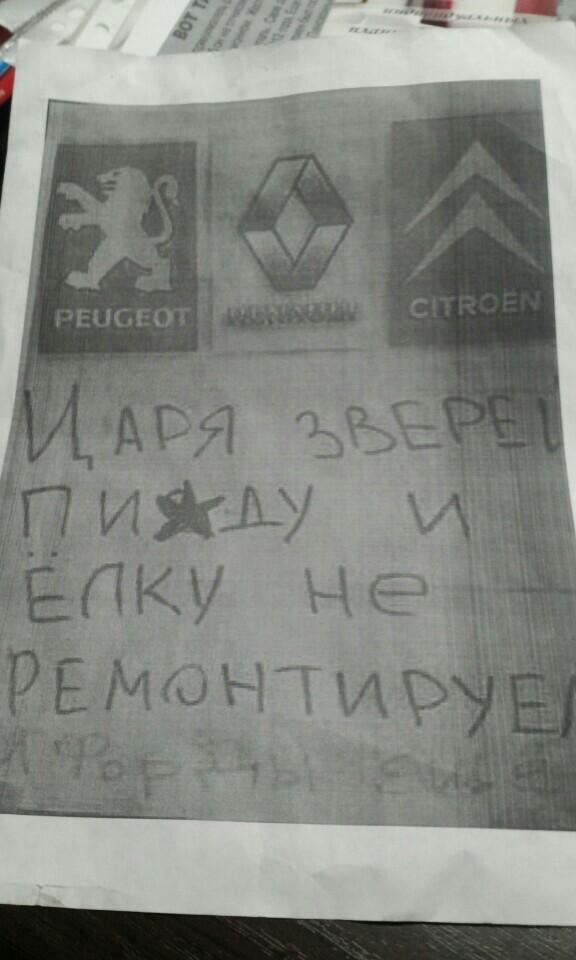 ВОТ ТА
PEUGEOT
RENAULT
CITROËN
ЦАРЯ ЗВЕРЕЙ
ПИ★ДУ И
ЁЛКУ Не
РЕМОНТИРУЕМ